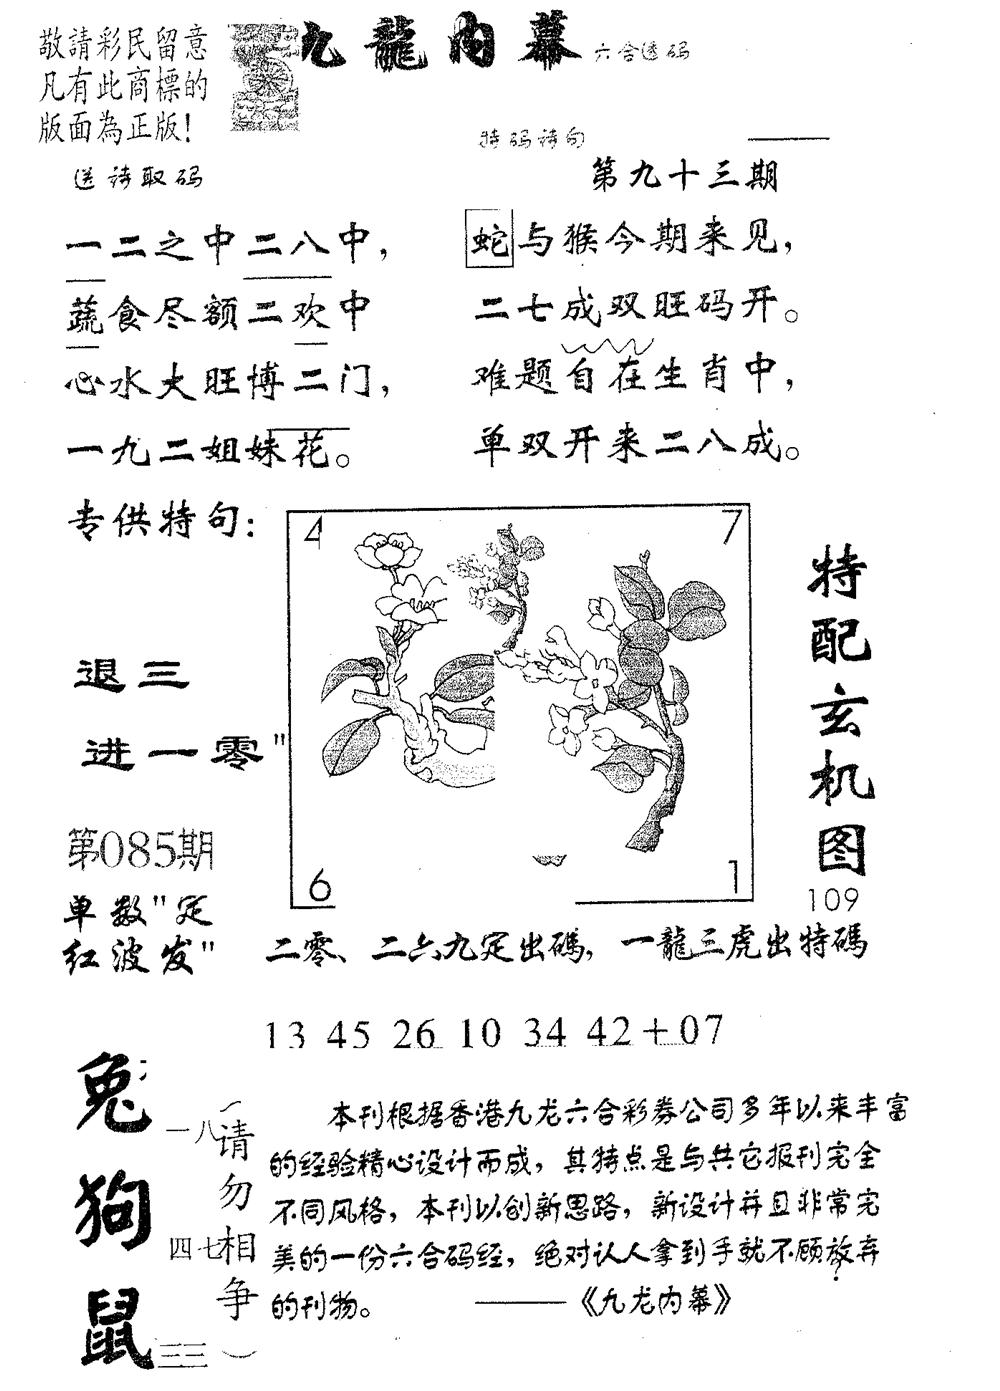 敬請彩民留意
凡有此商標的
版面為正版!
九龍内幕 六合透码
特码诗句
送诗取码
第九十三期
一二之中二八中,
蔬食尽额二欢中
心水大旺博二门,
一九二姐妹花。
蛇与猴今期来见,
二七成双旺码开。
难题自在生肖中,
单双开来二八成。
专供特句:
退三
进一零"
第085期
单数"定
红波发"
4
7
6
1
特配玄机图
109
二零、二六九定出碼, 一龍三虎出特碼
13 45 26 10 34 42+07
兔
狗
鼠
一八
四七
三三
(请勿相争)
本刊根据香港九龙六合彩券公司多年以来丰富
的经验精心设计而成, 其特点是与其它报刊完全
不同风格, 本刊以创新思路, 新设计并且非常完
美的一份六合码经, 绝对认人拿到手就不顾放弃
的刊物。 ——《九龙内幕》